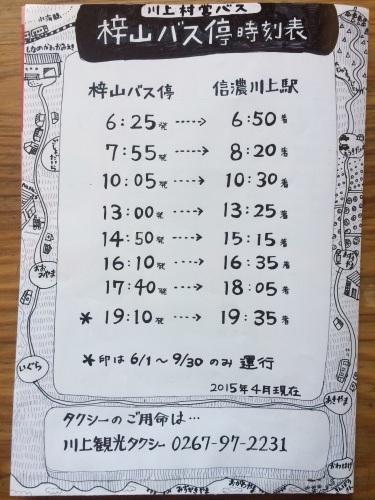 川上村営バス
梓山バス停時刻表
小海線
しなのかわかみえき
梓山バス停 信濃川上駅
6:25発 ----> 6:50着
7:55発 ----> 8:20着
10:05発 ---> 10:30着
13:00発 ---> 13:25着
14:50発 ---> 15:15着
16:10発 ---> 16:35着
17:40発 ---> 18:05着
* 19:10発 ---> 19:35着
*印は6/1〜9/30のみ運行
2015年4月現在
いぐら
あきやま
タクシーのご用命は…
川上観光タクシー 0267-97-2231